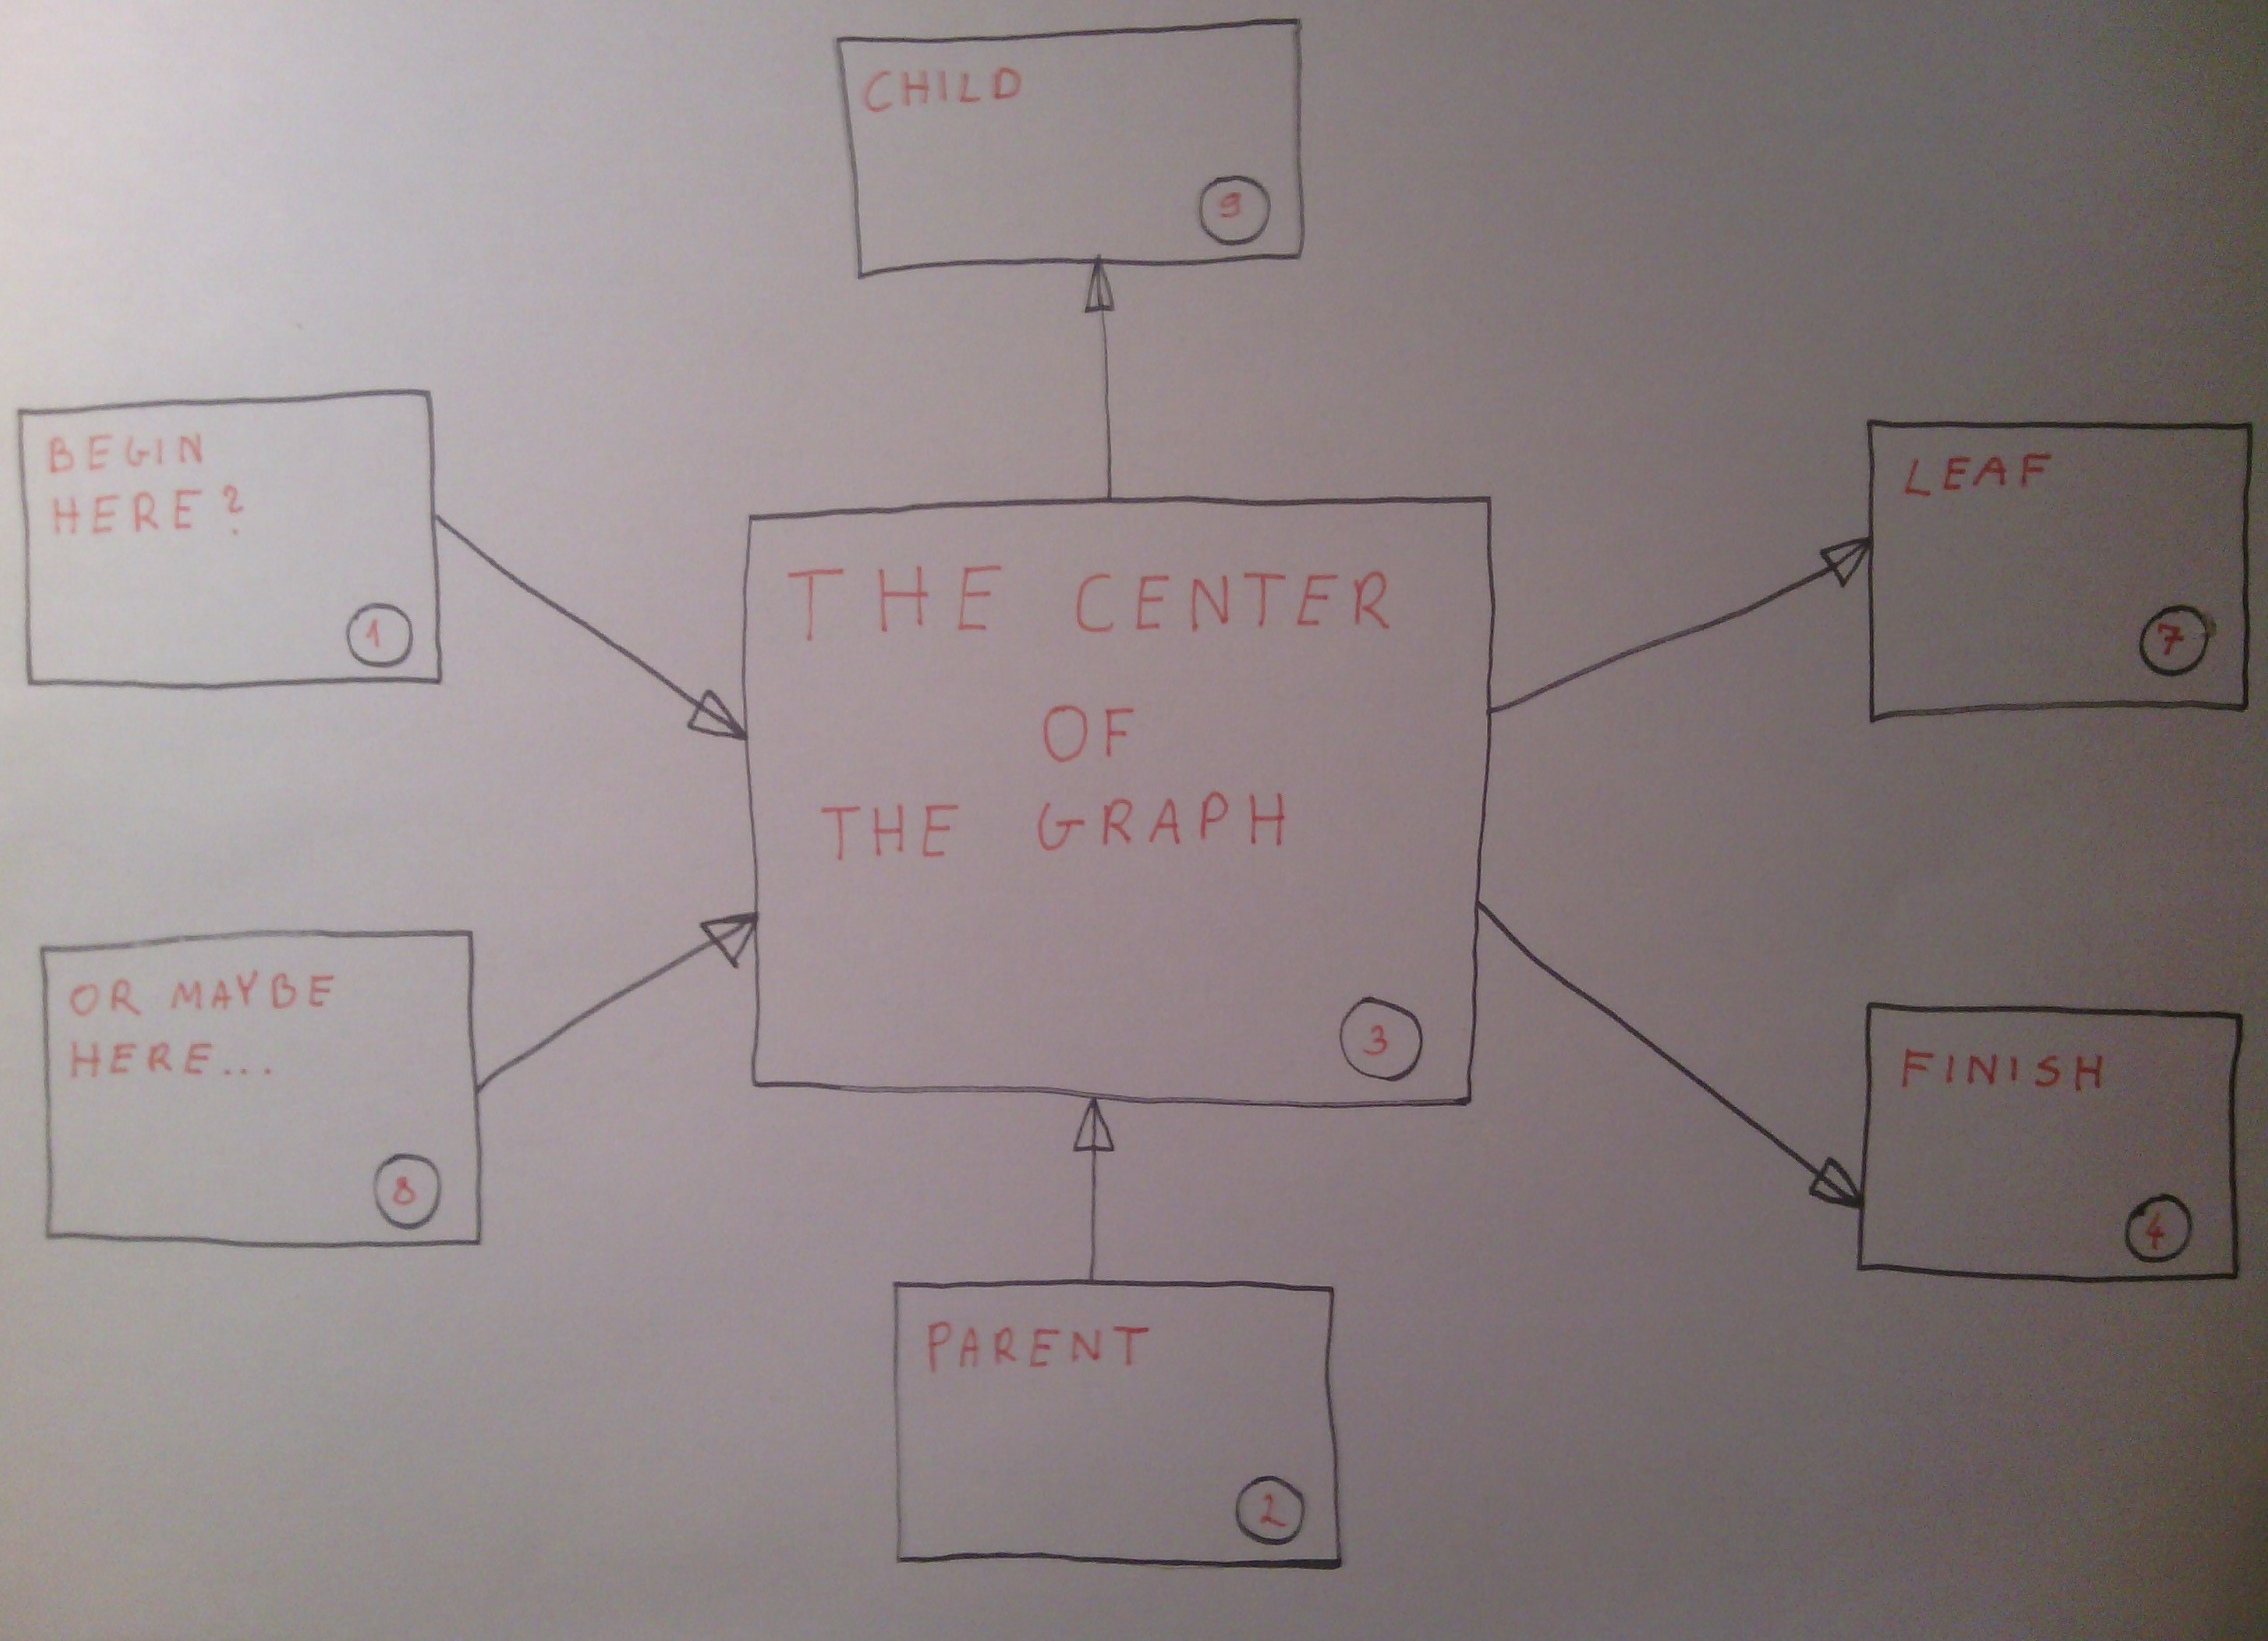 CHILD
9
BEGIN
HERE?
1
THE CENTER
OF
THE GRAPH
3
LEAF
7
OR MAYBE
HERE...
8
FINISH
4
PARENT
2